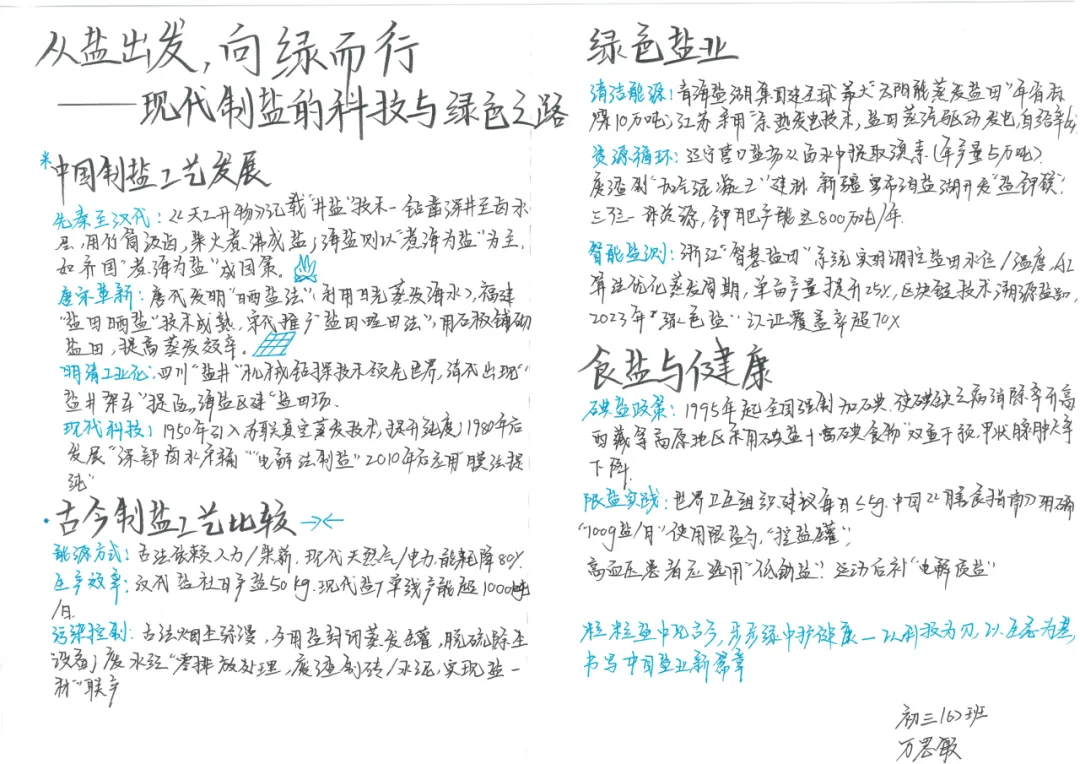 从盐出发，向绿而行
——现代制盐的科技与绿色之路
*中国制盐工艺发展
先秦至汉代：《天工开物》记载“井盐”技术—钻凿深井至卤水
层，用竹筒汲卤，柴火煮沸成盐；海盐则以“煮海为盐”为主，
如齐国“煮海为盐”成国策。
唐宋革新：唐代发明“晒盐法”（利用日光蒸发海水），福建
“盐田晒盐”技术成熟，宋代推广“盐田晒法”，用石板铺砌
盐田，提高蒸发效率。
明清工业化：四川“盐井”机械钻探技术领先世界，清代出现“
盐井架车”提卤，海盐区建“盐田场.
现代科技：1950年引入苏联真空蒸发技术，提升纯度；1980年后
发展“深部卤水开采”“电解法制盐”2010年后应用“膜法提
纯”
·古今制盐工艺比较
能源方式：古法依赖人力/柴薪，现代天然气/电力，能耗降80%.
生产效率：汉代盐灶日产盐50kg.现代盐厂单线产能超1000吨
/日.
污染控制：古法烟尘弥漫，今用盐封闭蒸发罐，脱硫除尘
设备；废水经“零排放处理，废渣制砖/水泥，实现盐—
材”联产
绿色盐业
清洁能源：青海盐湖集团建全球最大“太阳能蒸发盐田”年省标
煤10万吨；江苏采用“余热发电技术，盐田蒸汽驱动发电，自给率
资源循环：辽宁营口盐场从卤水中提取溴素（年产量5万吨）.
废渣制“加气混凝土”建材 新疆罗布泊盐湖开发“盐钾镁”
三位一体资源，钾肥产能达800万吨/年.
智能监测：浙江“智慧盐田”系统实时调控盐田水位/温度，AI
算法优化蒸发周期，单亩产量提升25%，区块链技术溯源盐,
2023年“绿色盐”认证覆盖率超70%
食盐与健康
碘盐政策：1995年起全国强制加碘，使碘缺乏病消除率升高
西藏等高原地区采用碘盐+高碘食物”双重干预，甲状腺肿大率
下降.
限盐实践：世界卫生组织建议每日≤5g.中国《膳食指南》明确
“100g盐/月”使用限盐勺，“控盐罐”；
高血压患者应选用“低钠盐”！运动后补“电解质盐”
粒粒盐中见古今，步步绿中护健康—以科技为刃，以生态为基，
书写中国盐业新篇章
初三(6)班